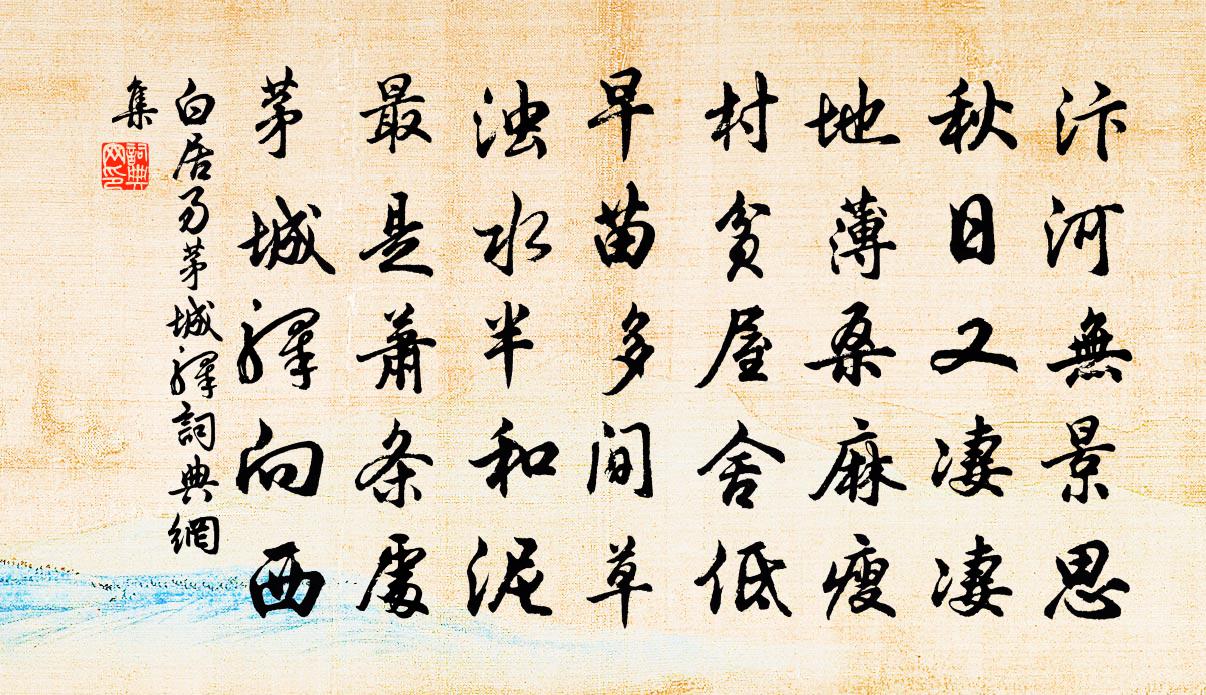 汴河無景思
秋日又凄凄
地薄桑麻瘦
村貧屋舍低
早苗多間草
浊水半和泥
最是萧条處
茅城驛向西
白居易茅城驛詞典網
集
詞典
网印